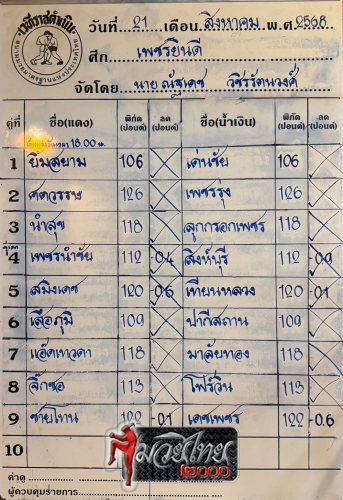 เวทีราชดำเนิน
วันที่ 21 เดือน สิงหาคม พ.ศ 2568
ศึก เพชรยินดี
จัดโดย นาย ณัฐเดช วชิรรัตนวงศ์
คู่ที่ ชื่อ(แดง) พิกัด (ปอนด์) ลด (ปอนด์) ชื่อ(น้ำเงิน) พิกัด (ปอนด์) ลด (ปอนด์)
เวลา 18.00 น.
1 ยิ้มสยาม 106 เด่นชัย 106
2 ศตวรรษ 126 เพชรรุ่ง 126
3 นำสุข 118 ลูกกรอกเพชร 118
4 เพชรนำชัย 112 -0.4 สิงห์บุรี 112 -0.9
5 สมิงเดช 120 -0.6 เทียนหลวง 120 -0.1
6 เสือภูมิ 109 ปากีสถาน 109
7 แอ๊ดเทวดา 118 มาลัยทอง 118
8 จิ๊กซอ 113 โฟร์วีน 113
9 ชายโทน 122 -0.1 เดชเพชร 122 -0.6
10
มวยไทย
๒๐๐๐
ค่าดู
ผู้ควบคุมรายการ